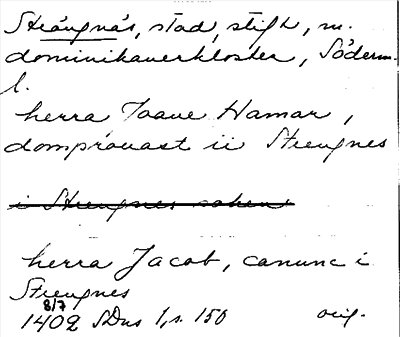 Strängnäs, stad, stift, m.
dominikanerkloster, Söderm.
l.
herra Joane Hamar,
domprouast ii Strengnes
i Strengnes
herra Jacob, canunc i
Strengnes
8/7
1402 SDns 1, s. 150 orig.